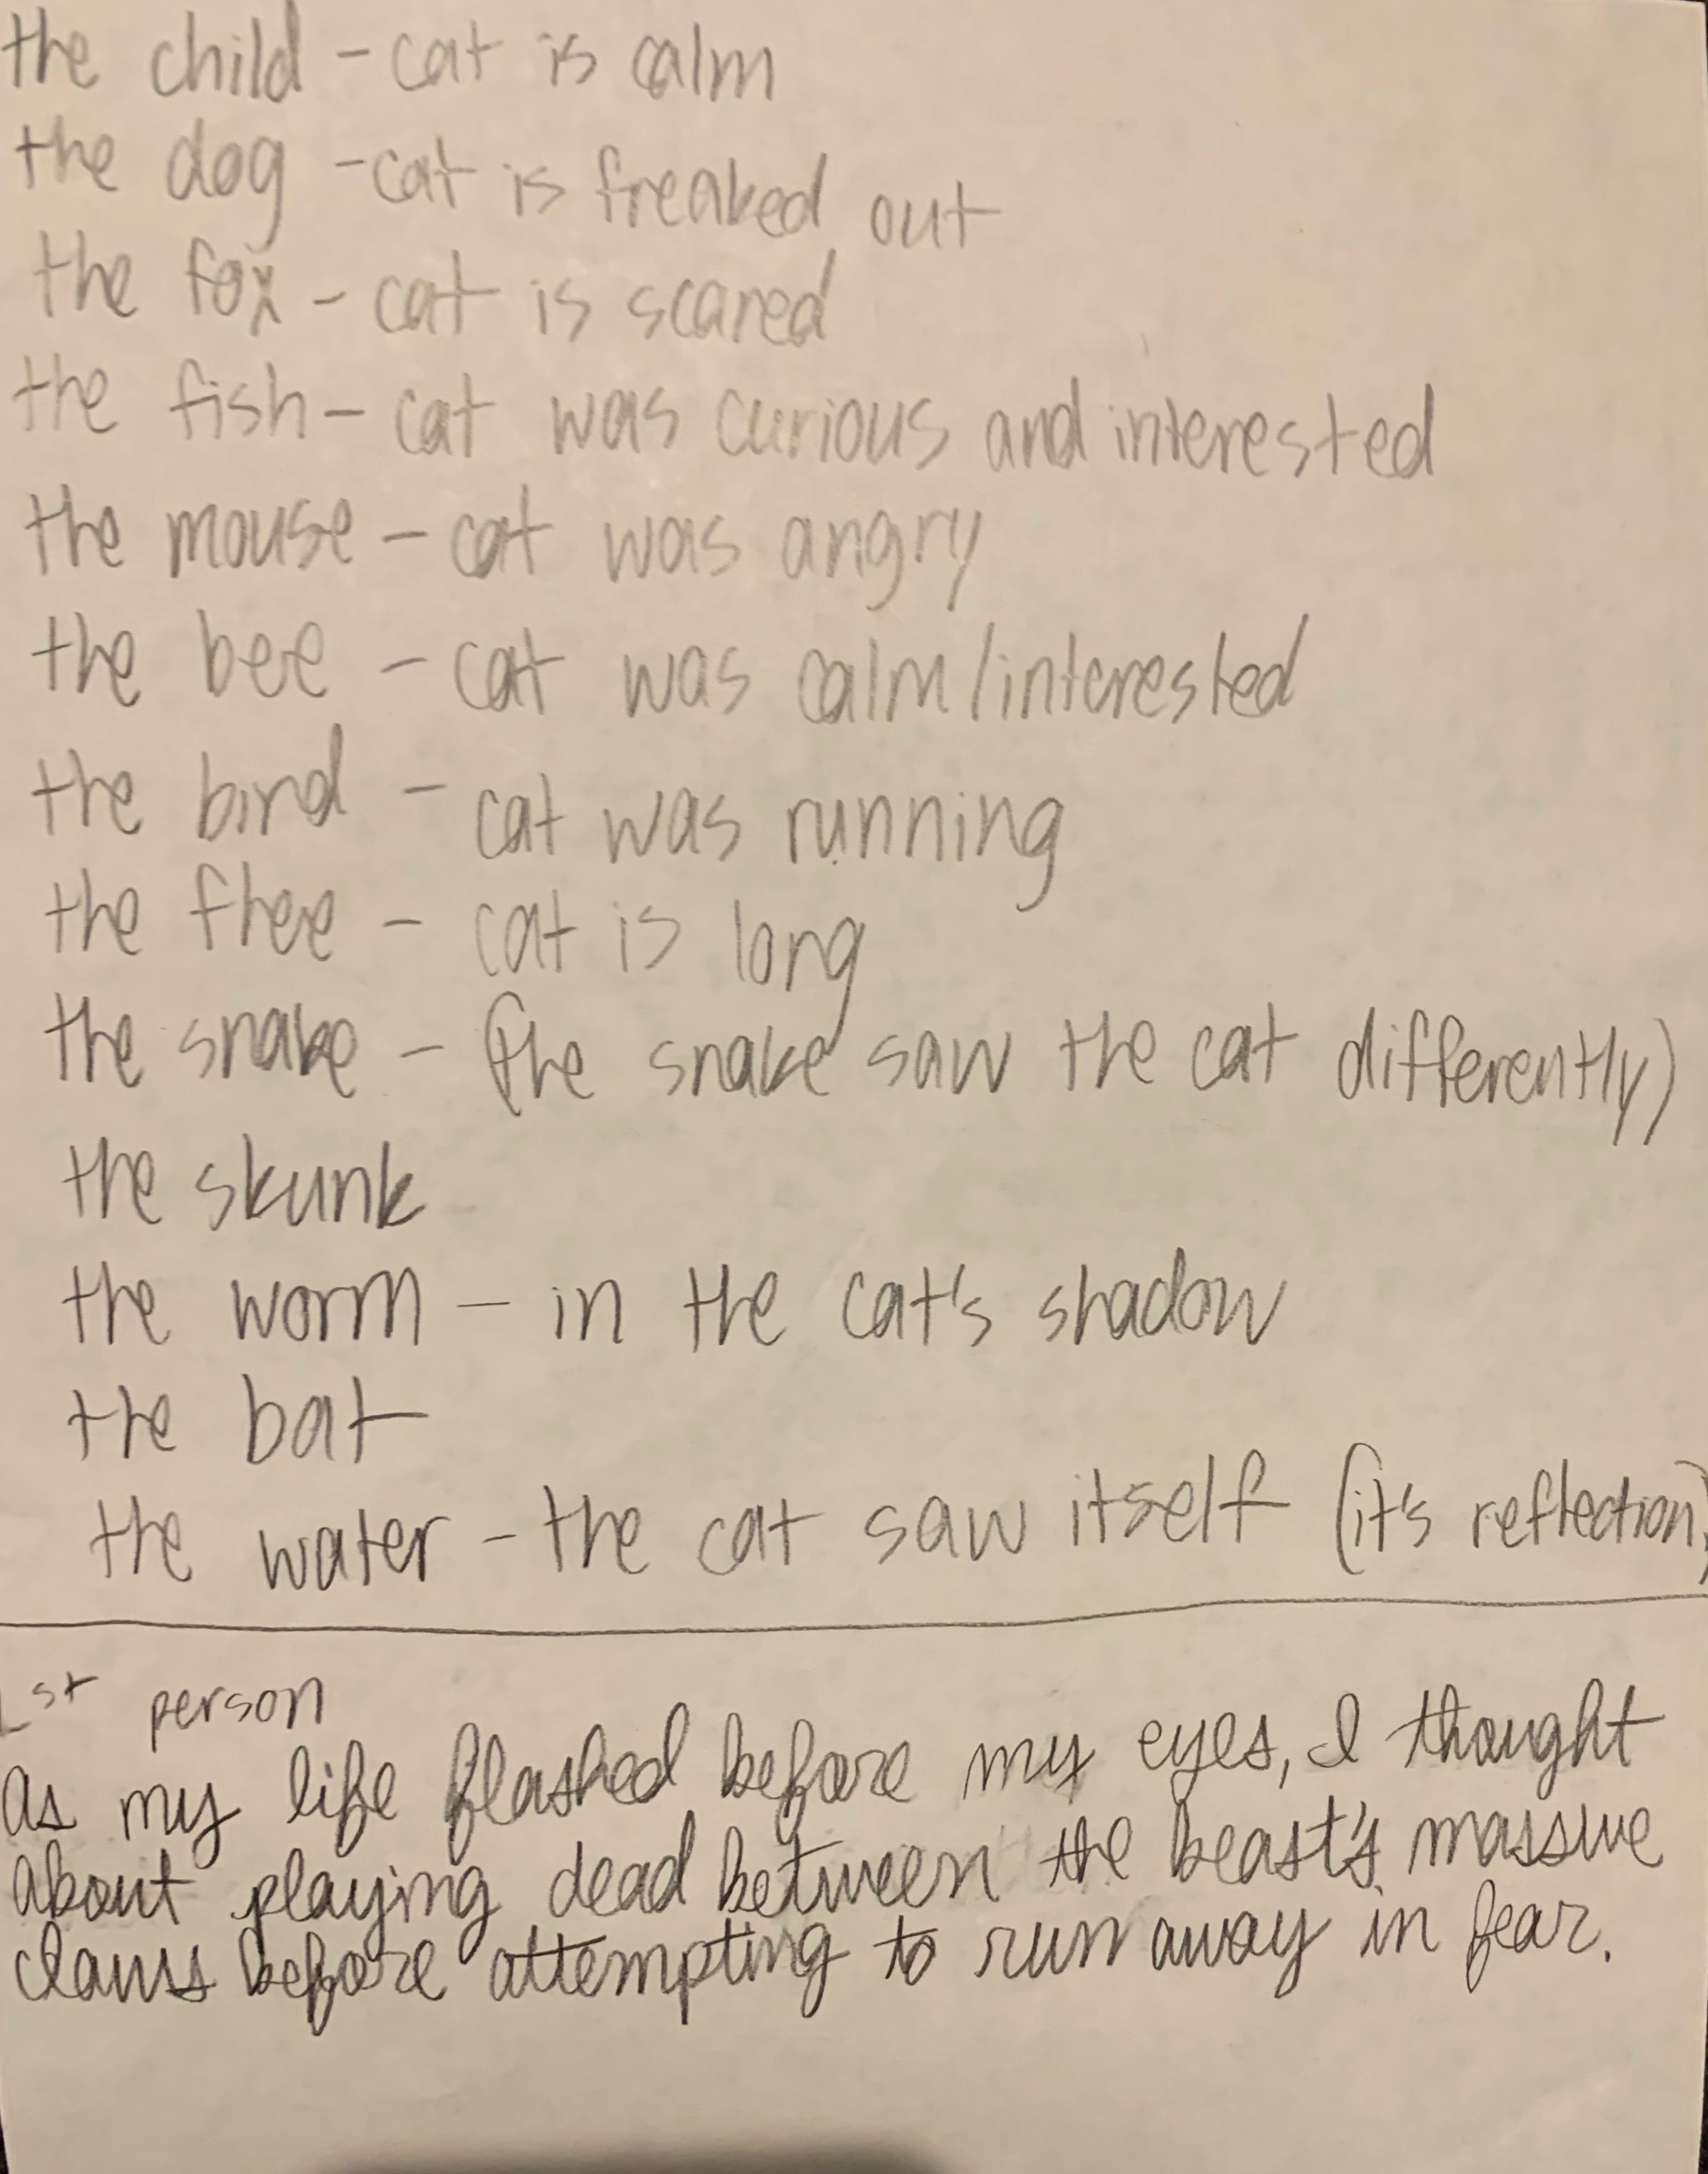 the child - cat is calm
the dog - cat is freaked out
the fox - cat is scared
the fish - cat was curious and interested
the mouse - cat was angry
the bee - cat was calm/interested
the bird - cat was running
the flee - cat is long
the snake - (the snake saw the cat differently)
the skunk
the worm - in the cat's shadow
the bat
the water - the cat saw itself (it's reflection)
1st person
as my life flashed before my eyes, I thought
about playing dead between the beast's massive
claws before attempting to run away in fear.